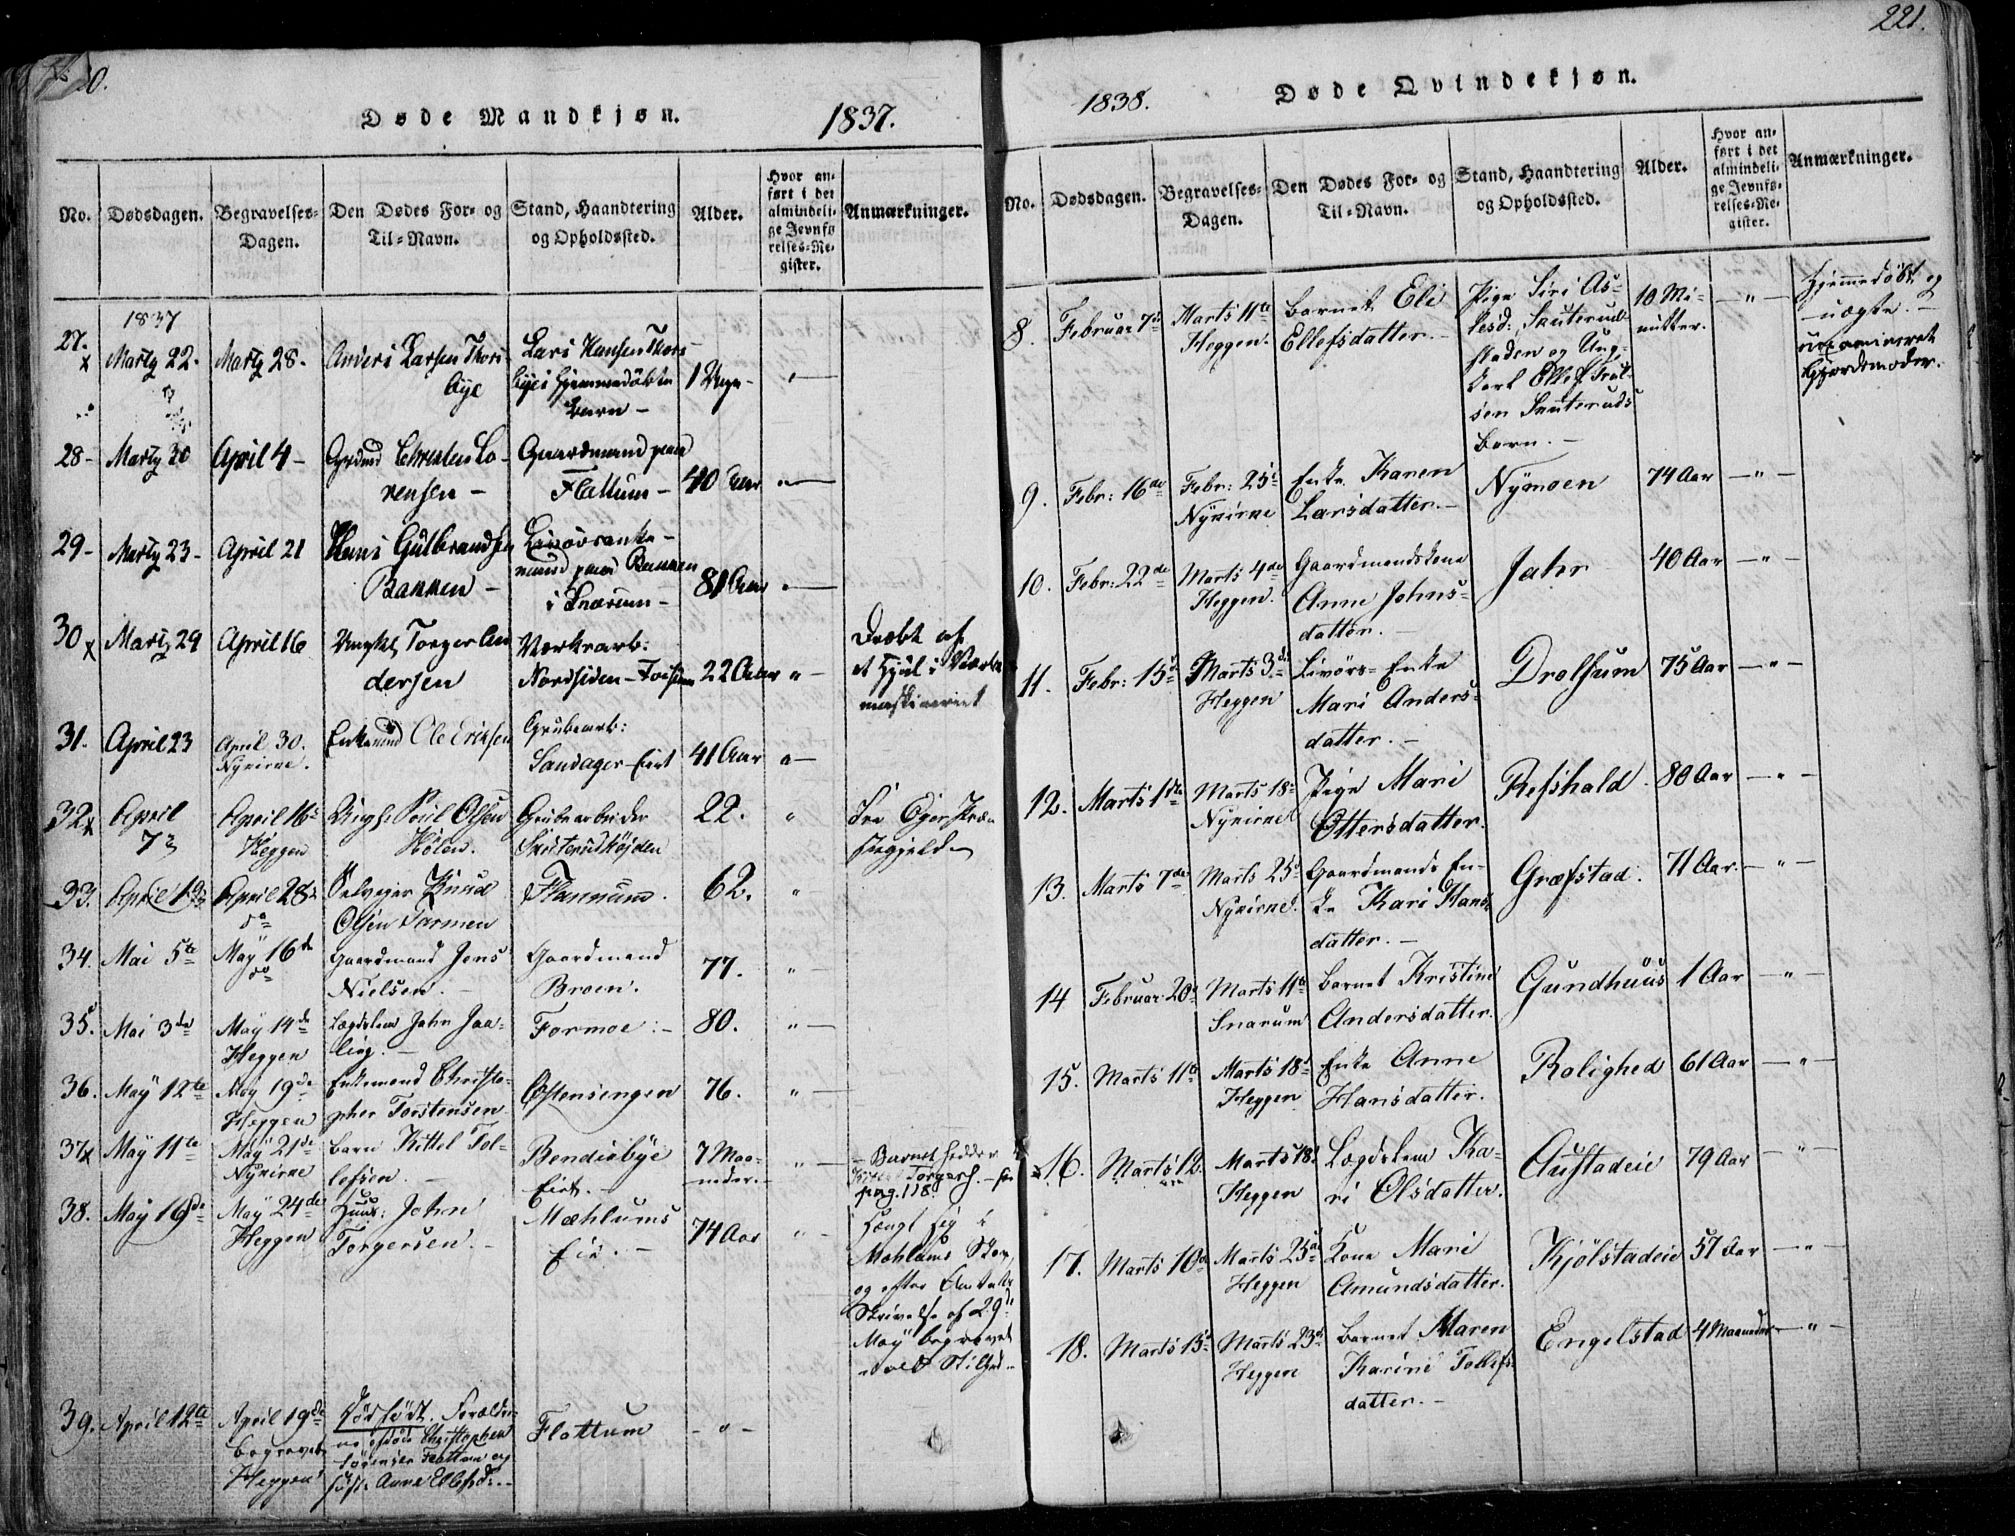 Døde Mandkjøn. 1837.
No. Dødsdagen. Begravelses-Dagen. Den Dødes For- og Til-Navn. Stand, Haandtering og Opholdssted. Alder. Hvor anført i det almindelige Jevnførelses-Register. Anmærkninger.
1837
27. Marty 22. Marty 28. Anders Larsen Thorsbye
Lars Hansen Thorsbyes hjemmedøbte Barn – 1 Uge –
28 – Marty 30 April 4 – Christen Lorensen –
Gaardmand paa Flattum – 40 Aar
29 – Marty 23 – April 21 Hans Gulbrandsen Bakken –
paa Bakken i Snarum – 81 Aar
30 Marty 29 April 16 Ungkl. Torger Andersen
Værksarb: Nordsiden – Fossum 22 Aar "
Dræbt af et Hjul i Værks maskineriet
31. April 23 April 30. Nykirke. Enkemand Ole Eriksen
Grubearb: Sandager-Eiet 41 Aar
32 April 7 April 16 Heggen Ungk. Poul Olsen Hølen.
Grubearbeider Skuterudhøjden 22. "
Fra Eger Præstegjeld
33. April 19 April 28 do Selveger Knud Olsen Formen
Flannum. 62. "
34. Mai 5te May 16de do Gaardmand Jens Nielsen. –
Gaardmand Braaten. 77. "
35. Mai 3de May 14de Heggen Lægdslem John
Formoe. – 80. "
36. May 12te May 19de Heggen Enkemand Christopher Torstensen.
Østensengen 76. "
37 May 11te May 21de Nykirke Barn Kittel Tollefsen. –
Bendiksbye Eiet. – 7 Maaneder. "
– Barnet hedder Torgersen. – pag. 118.
38. May 16de May 24de Heggen Huus: John Torgersen. –
Mæhlums Eie. – 74 Aar "
Hængt sig i Mæhlums Skov, og efter Amtets Skrivelse af 29de May begravet
39. April 12te April 19de begravet Heggen Dødfødt. Forældrene Christopher Sørensen Flattum og Anne Ellefsd: –
Flattum "
221.
1838. Døde Qvindekjøn.
No. Dødsdagen. Begravelses-Dagen. Den Dødes For- og Til-Navn. Stand, Haandtering og Opholdssted. Alder. Hvor anført i det almindelige Jevnførelses-Register. Anmærkninger.
8. Februar 7de Marts 11te Heggen. Barnet Eli Ellefsdatter. –
Pige Siri Aslesd: Skuterudstaden og Ungkarl Ellef Skuteruds Barn. – 10 Minutter. "
Hjemmedøbt og uægte. – uexamineret Gjordemoder.
9. Febr: 16de Febr: 25de Nykirke Enke Karen Larsdatter. –
Nymoen 74 Aar "
10. Febr: 22de Marts 4de Heggen. Gaardmandskone Anne Johnsdatter. –
Jahr 40 Aar "
11. Febr: 15de Marts 3de Heggen Livørs-Enke Mari Andersdatter. –
Drolsum 75 Aar "
12. Marts 1ste Marts 18de Nykirke Pige Mari Ottersdatter.
Refshald. 80 Aar "
13. Marts 7de Marts 25de Nykirke. Gaardmands Enke Kari Hansdatter. –
Græfstad. 71 Aar. "
14 Februar 20de Marts 11te Snarum Barnet Kristine Andersdatter.
Gundhuus 1 Aar "
15. Marts 11te Marts 18de Heggen Enke Anne Hansdatter.
Rolighed 61 Aar "
16. Marts 12. Marts 18de Heggen Lægdslem Kari Olsdatter.
Austadeie 79 Aar "
17. Marts 10de Marts 25de Heggen Kone Mari Amundsdatter.
Kjølstadeie 57 Aar "
18. Marts 15de Marts 23de Heggen Barnet Maren Karine Tollefsdatter. –
Engelstad 4 Maaneder "